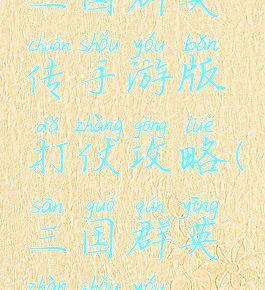 三国群英
chuán shǒu yóu bǎn
传手游版
dǎ zhàng gōng lüè
打仗攻略(
sān guó qún yīng
三国群英
zhàn shǒu yóu